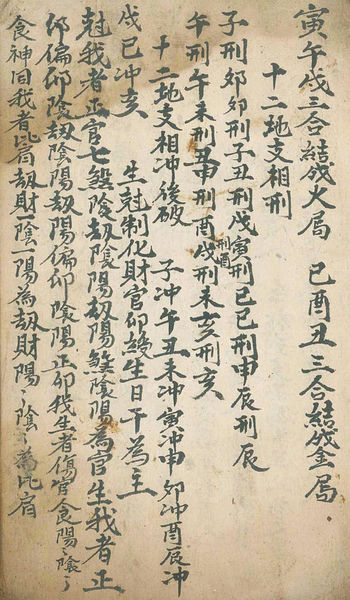 寅午戌三合結成火局　巳酉丑三合結成金局
十二地支相刑
子刑卯卯刑子丑刑戌寅刑巳巳刑申辰刑辰
午刑午未刑丑申刑酉戌刑未亥刑亥
刑酉
十二地支相冲後破　子冲午丑未冲寅冲申卯冲酉辰冲
戌巳冲亥　生尅制化財官印綬生日干為主
尅我者正官七煞陰劫陰陽劫陽煞陰陽為官生我者正
印偏印陰劫陰陽劫陽偏印陰陽正卯我生者傷官食陽〻陰〻
食神同我者比肩劫財一陰一陽為劫財陽〻陰〻為比肩